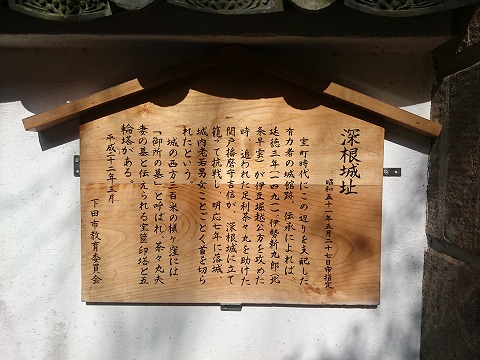 深根城址
昭和五十一年五月二十七日市指定
室町時代にこの辺りを支配した
有力者の城館跡。伝承によれば、
延徳三年(一四九一)、伊勢新九郎(北
条早雲)が伊豆堀越公方を攻めた
時、追われた足利茶々丸を助けた
関戸播磨守吉信が、深根城に立て
籠って抗戦し、明応七年に落城、
城内老若男女ことごとく首を切ら
れたという。
城の西方三百米の横ヶ窪には、
「御所の墓」と呼ばれ、茶々丸夫
妻の墓と伝えられる宝篋印塔と五
輪塔がある。
平成二十二年三月
下田市教育委員会